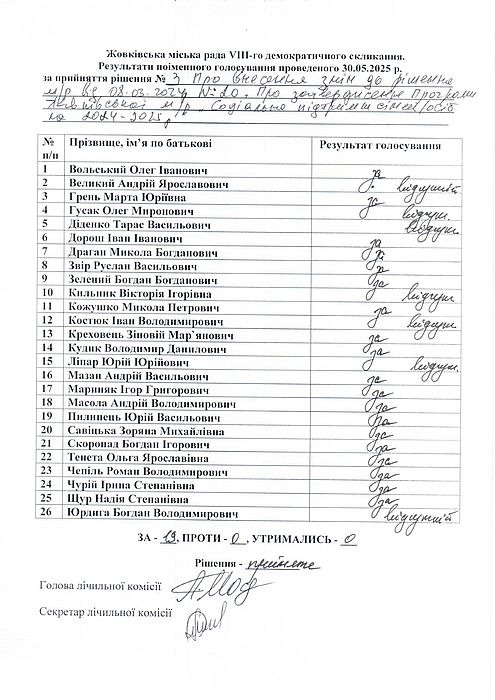 Жовківська міська рада VIII-го демократичного скликання.
Результати поіменного голосування проведеного 30.05.2025 р.
за прийняття рішення № 3 Про внесення змін до рішення
м/р від 08.03.2024р №20 „Про затвердження Програми
Жовківської м/р „Соціальна підтримка сімей/осіб
на 2024-2025р"
№ п/п Прізвище, ім’я по батькові Результат голосування
1 Вольський Олег Іванович за
2 Великий Андрій Ярославович відсутній
3 Грень Марта Юріївна за
4 Гусак Олег Миронович відсутн.
5 Діденко Тарас Васильович відсутн.
6 Дорош Іван Іванович за
7 Драган Микола Богданович за
8 Звір Руслан Васильович за
9 Зелений Богдан Богданович за
10 Кильник Вікторія Ігорівна відсутн.
11 Кожушко Микола Петрович за
12 Костюк Іван Володимирович відсутн.
13 Креховець Зіновій Мар`янович за
14 Кудик Володимир Данилович за
15 Ліпар Юрій Юрійович відсутн.
16 Мазан Андрій Васильович за
17 Мариняк Ігор Григорович за
18 Масола Андрій Володимирович за
19 Пилипець Юрій Васильович за
20 Савіцька Зоряна Михайлівна за
21 Скоропад Богдан Ігорович за
22 Тенета Ольга Ярославівна за
23 Чепіль Роман Володимирович за
24 Чурій Ірина Степанівна за
25 Щур Надія Степанівна за
26 Юрдига Богдан Володимирович відсутній
ЗА - 19, ПРОТИ - 0, УТРИМАЛИСЬ - 0
Рішення - прийнято
Голова лічильної комісії
Секретар лічильної комісії